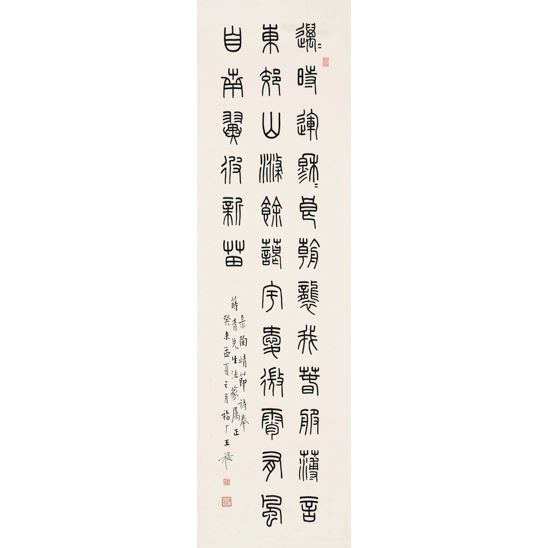 邁〻時運穆〻良朝襲我春服薄言
東郊山滌餘譪宇愛微霄有風
自南翼彼新苗
录陶靖節詩奉
蒔青先生法家屬正
癸未孟夏之月福厂王禔